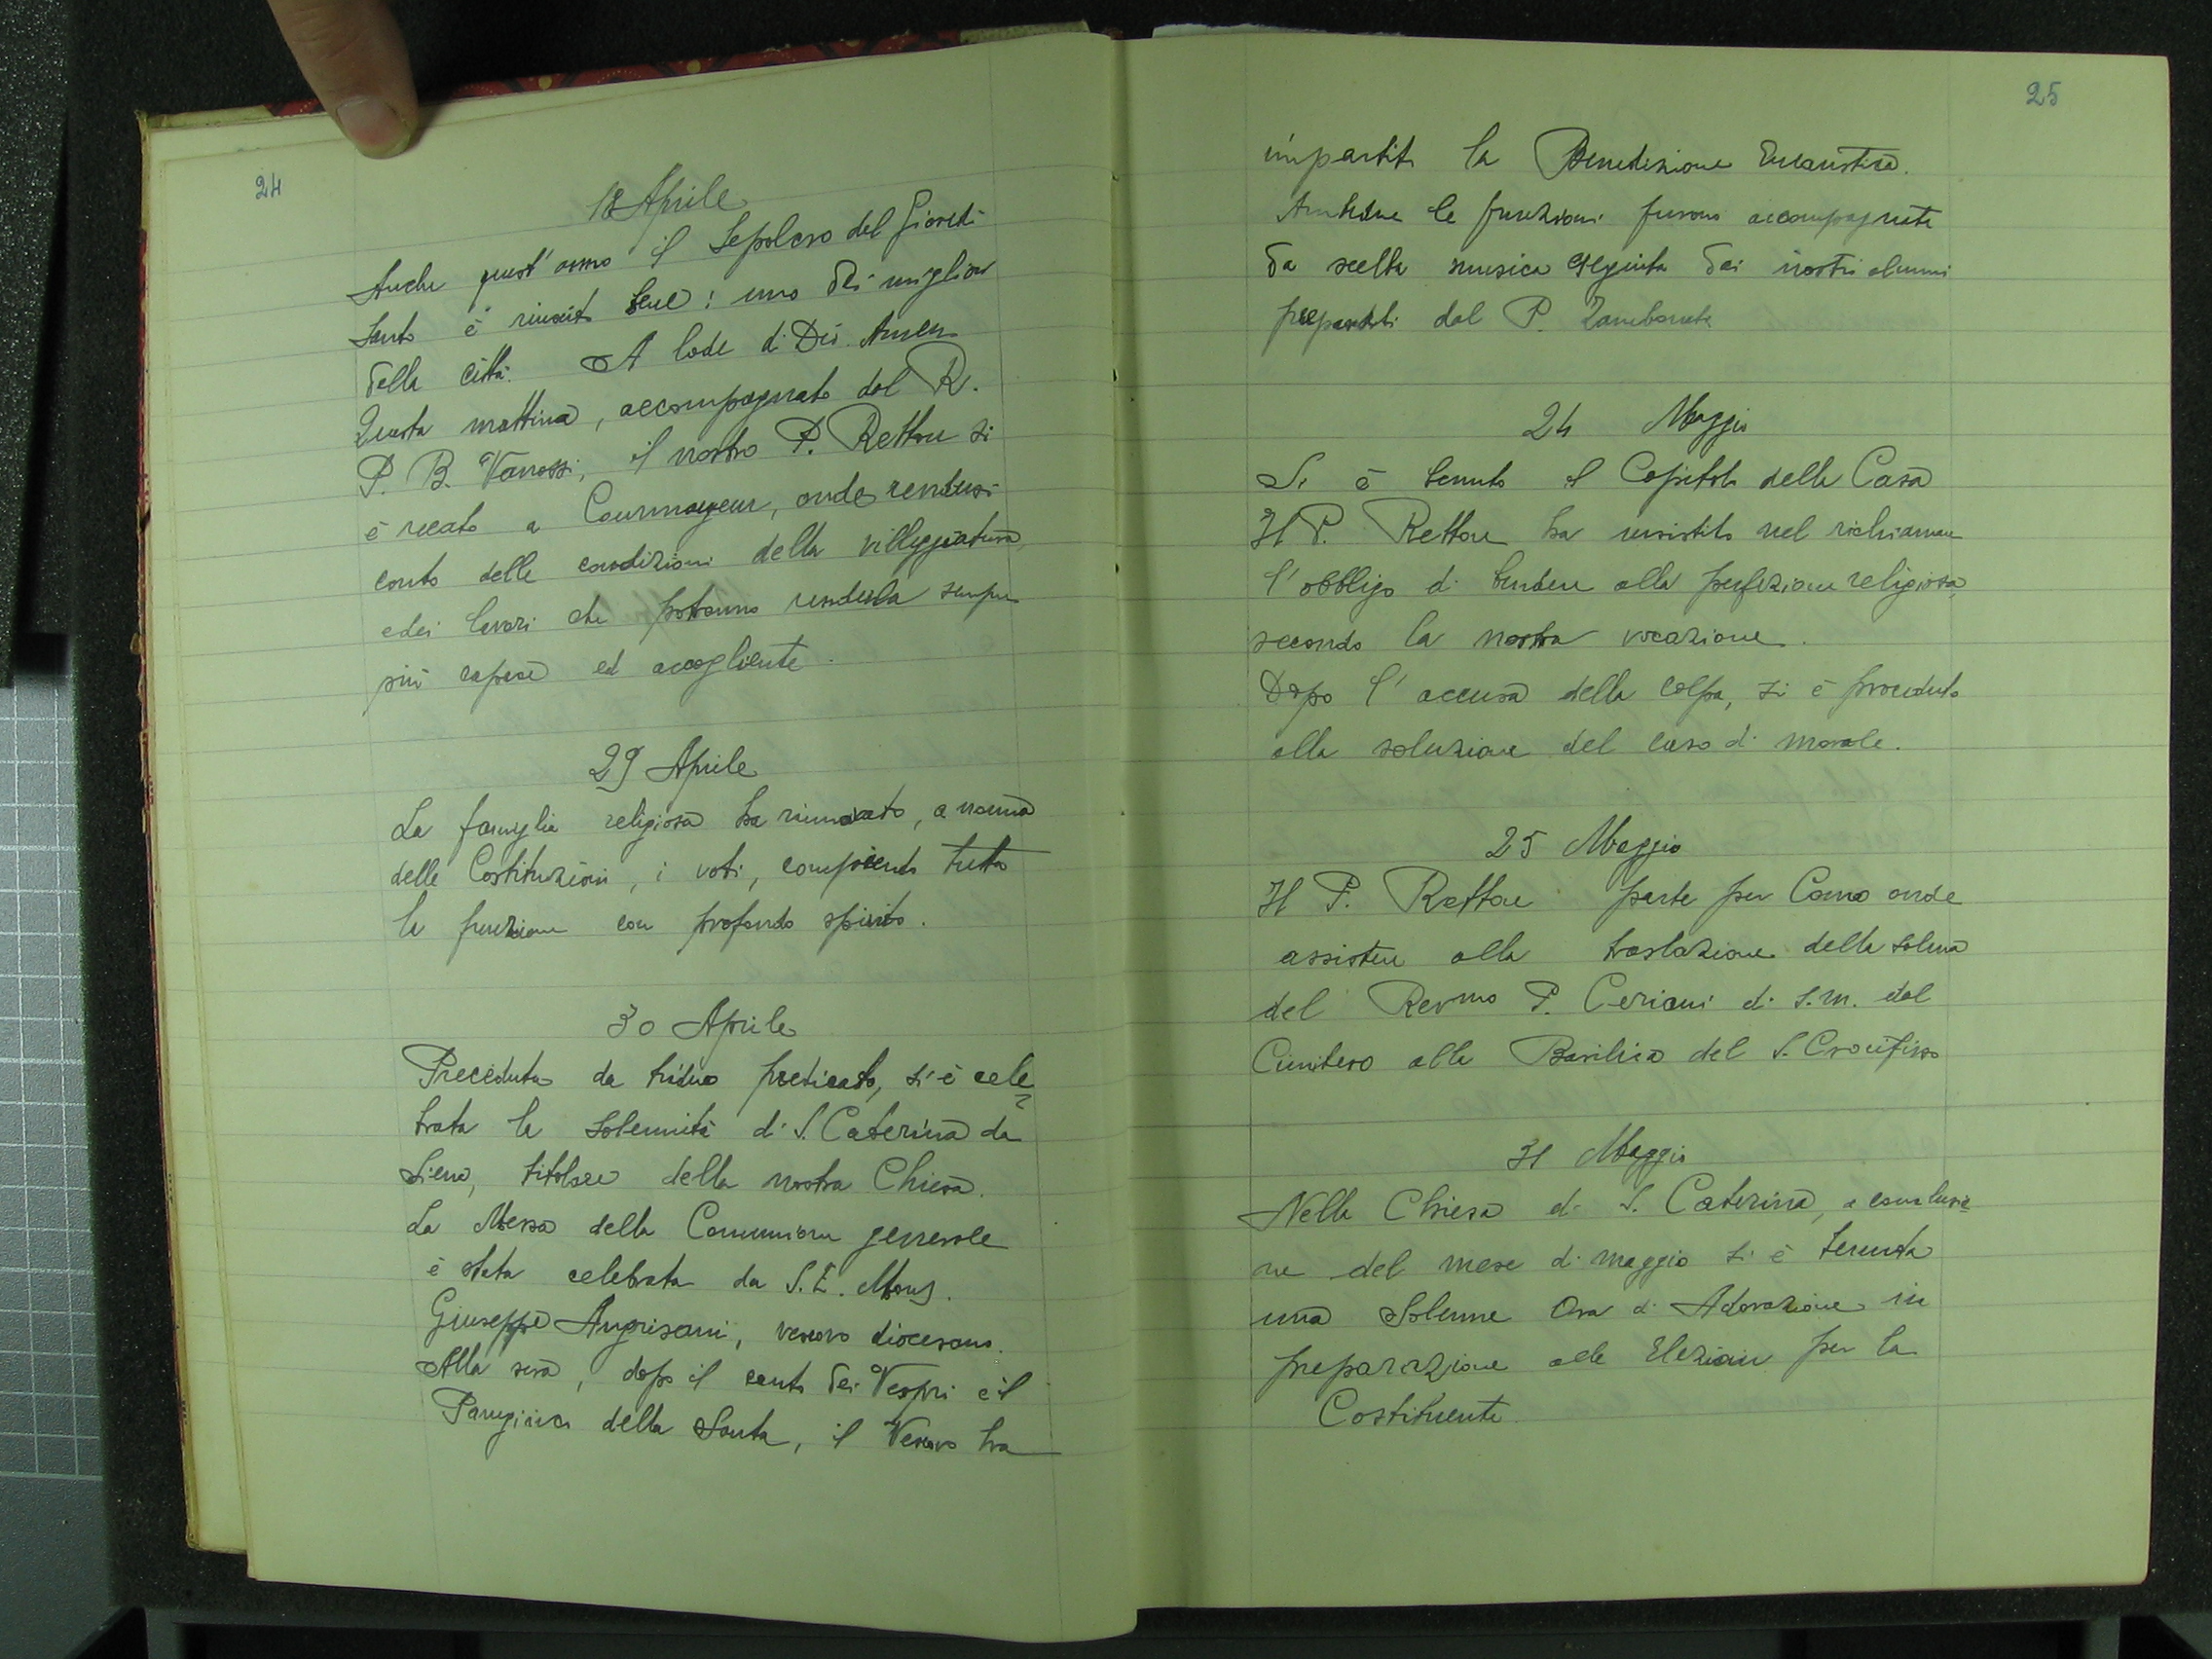 24
18 Aprile
Anche quest'anno il Sepolcro del Giovedì
Santo è riuscito bene: uno dei migliori
della città. A lode di Dio. Amen
Questa mattina, accompagnato dal R.
P. B. Vanossi, il nostro P. Rettore si
è recato a Courmayeur, onde rendersi
conto delle condizioni della villeggiatura,
e dei lavori che potranno renderla sempre
più capace ed accogliente.
29 Aprile
La famiglia religiosa ha rinnovato, a norma
delle Costituzioni, i voti, compiendo tutta
la funzione con profondo spirito.
30 Aprile
Preceduta da triduo predicato, si è cele=
brata la solennità di S. Caterina da
Siena, titolare della nostra Chiesa.
La Messa della Comunione generale
è stata celebrata da S. E. Mons.
Giuseppe Angrisani, vescovo diocesano.
Alla sera, dopo il canto dei Vespri e il
Panegirico della Santa, il Vescovo ha
25
impartito la Benedizione Eucaristica.
le funzioni furono accompagnate
da scelta musica eseguita dai nostri alunni
preparati dal P. Zambonati
24 Maggio
Si è tenuto il Capitolo della Casa
Il P. Rettore ha insistito nel richiamare
l'obbligo di tendere alla perfezione religiosa,
secondo la nostra vocazione.
Dopo l'accusa della colpa, si è proceduto
alla soluzione del caso di morale.
25 Maggio
Il P. Rettore parte per Como onde
assistere alla traslazione della salma
del Rev.mo P. Ceriani di s.m. dal
Cimitero alla Basilica del S. Crocifisso
31 Maggio
Nella Chiesa di S. Caterina, a conclusio=
ne del mese di maggio si è tenuta
una Solenne Ora di Adorazione in
preparazione alle Elezioni per la
Costituente